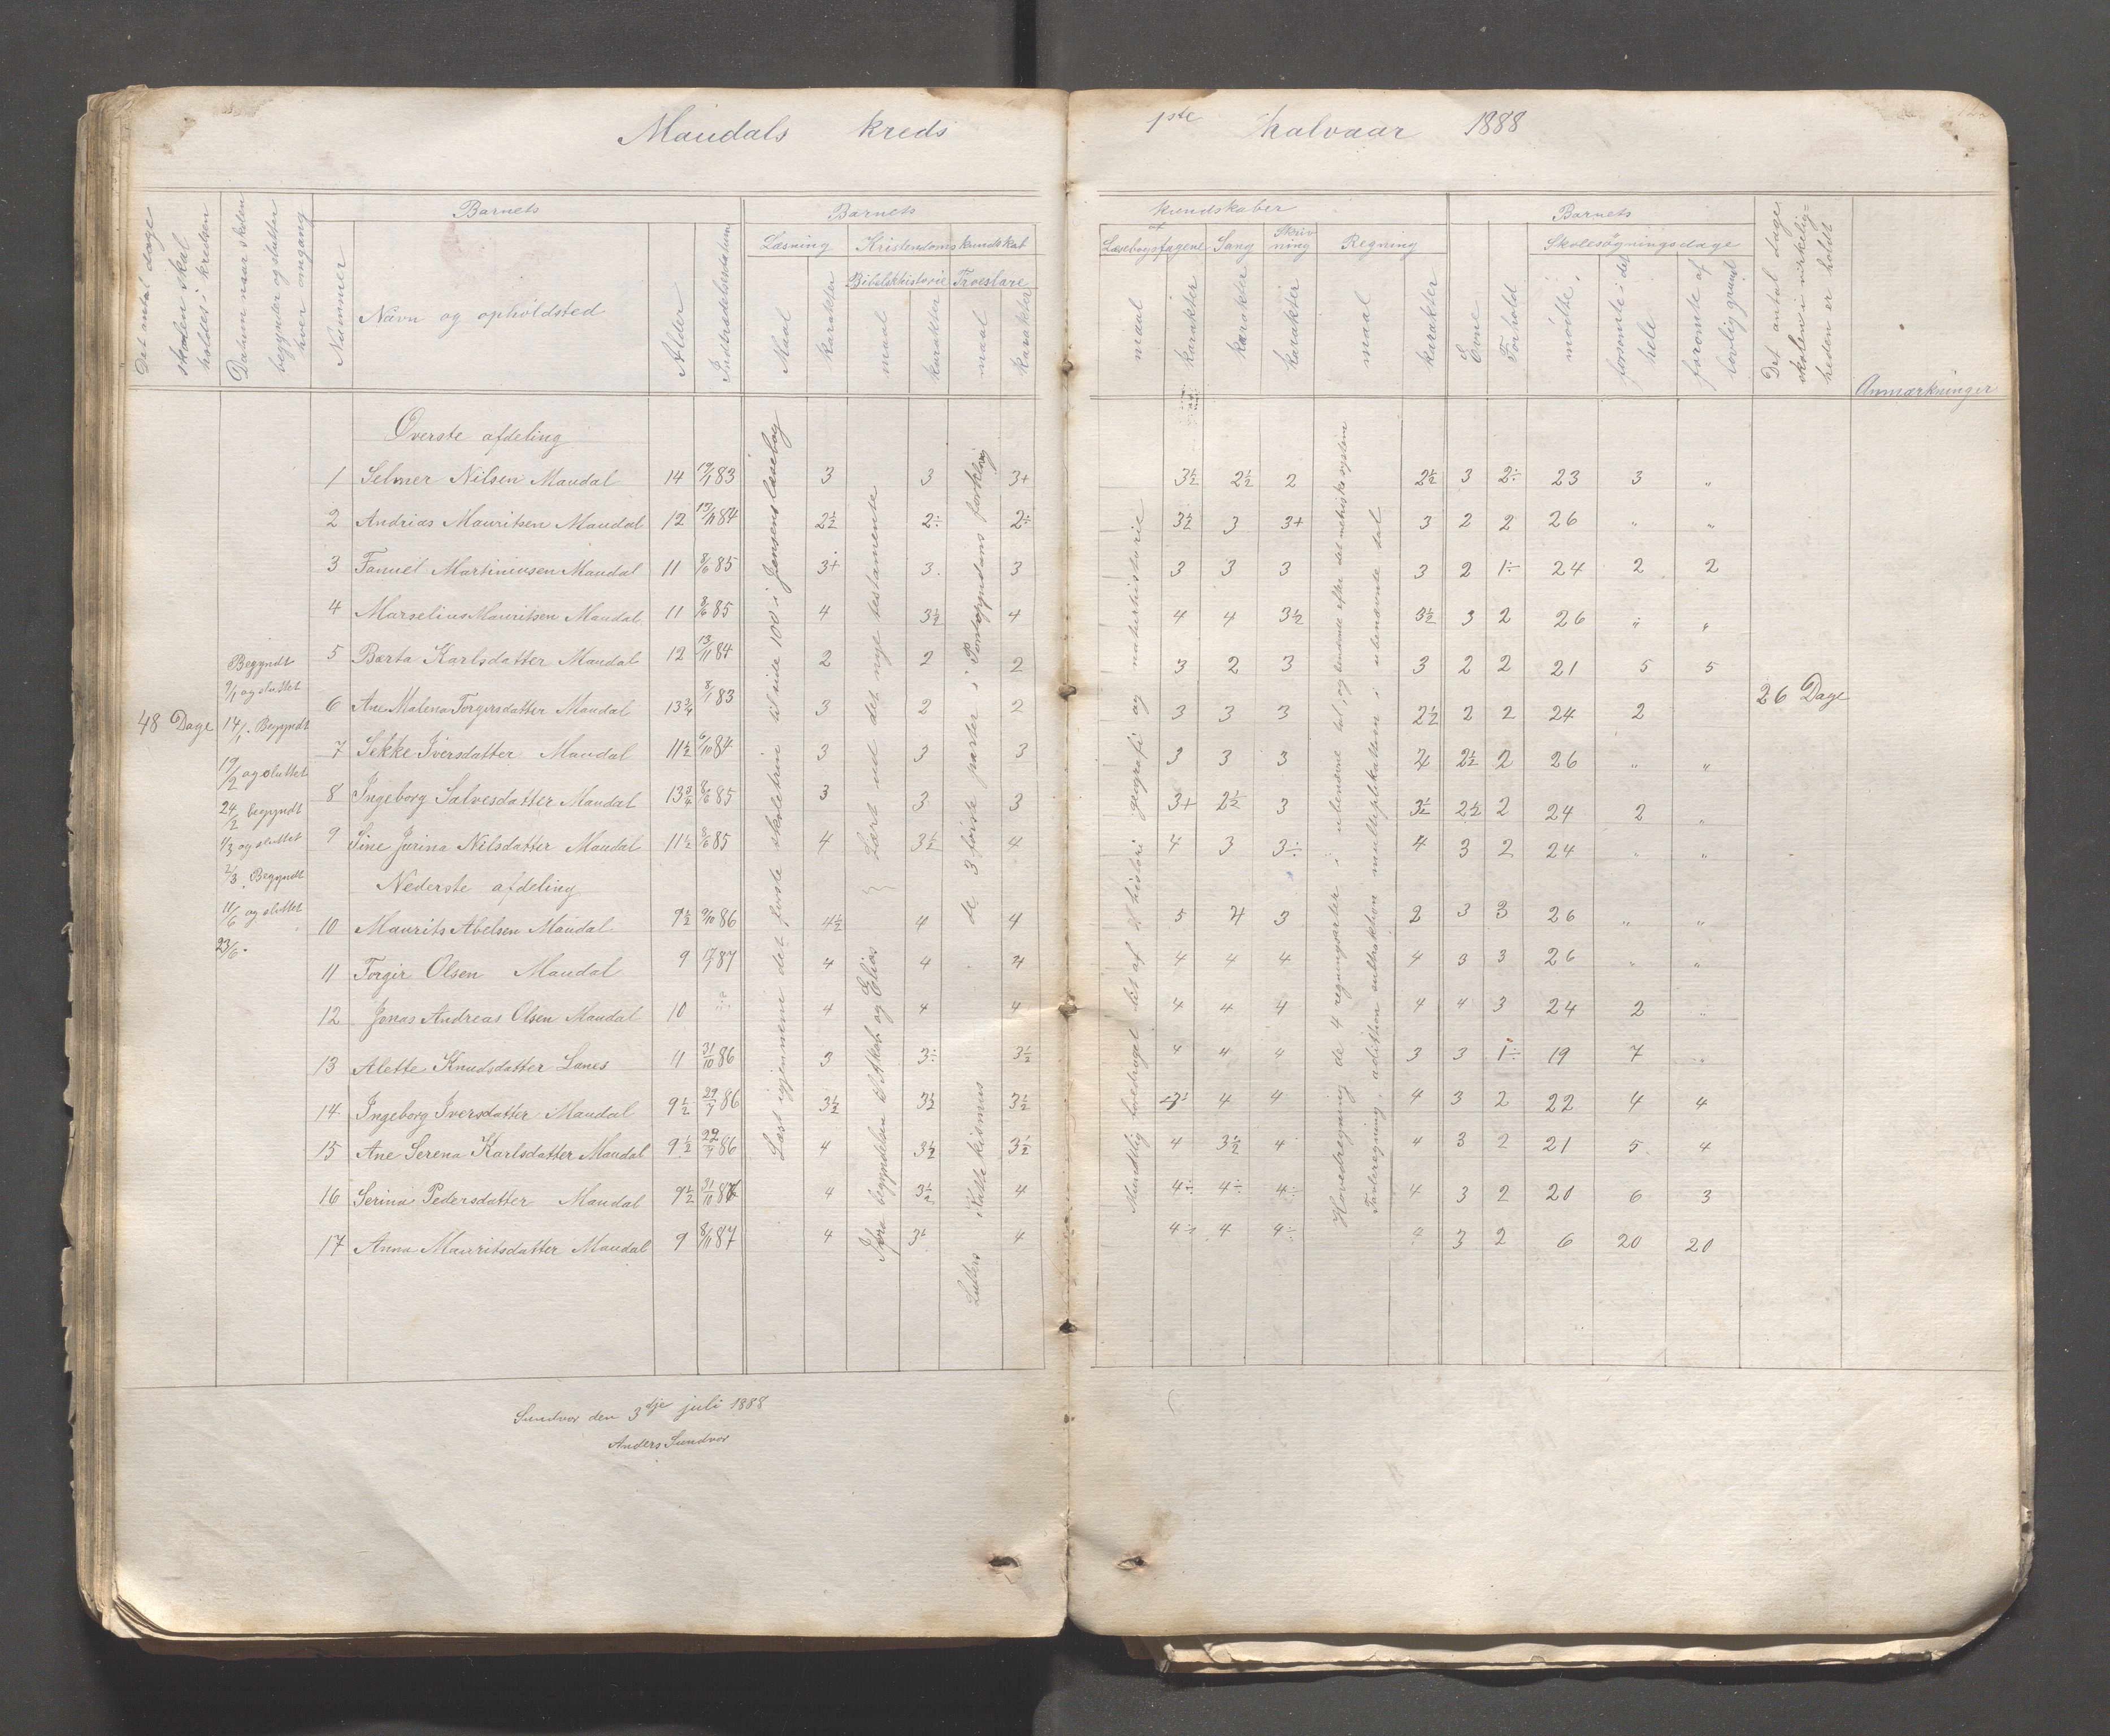 Maudals kreds 1ste halvaar 1888
Det antal dage skolen skal holdes i kredsen
Datum naar skolen begynder og slutter hver omgang
Nummer
Barnets
Navn og opholdsted
Alder
Indtrædelsesdatum
Barnets kundskaber
Læsning
Maal
karakter
Kristendomskundskab
Bibelskhistorie
maal
karakter
Troeslære
maal
karakter
Læsebogsfagene
maal
karakter
Sang
karakter
Skrivning
karakter
Regning
maal
karakter
Evne
Forhold
Barnets
Skolesøgningsdage
mødte
forsømte i det hele
forsømte af lovlig grund
Det antal dage skolen i virkeligheden er holdt
Anmærkninger
48 Dage
Begyndt
9/1 og sluttet
14/1. Begyndt
19/2 og sluttet
24/2 begyndt
1/3 og sluttet
2/3. Begyndt
11/6 og sluttet
23/6.
Læst igjennem det første skoletrin til side 100 i Jensens læsebog
Lært ud det nye testamente
Fra begyndelsen til Akab og Elias
de 3 første parter i Pontoppidans forklaring
Luthers Katekismus
Mundtlig foredraget lidt af historie geografi og naturhistorie
Hovedregning de 4 regningsarter i ubenævnte tal, og benævnte efter det metriske system
Tavleregning, adition subtraktion multiplikation i ubenævnte tal
26 Dage
Øverste afdeling
1 Selmer Nilsen Maudal 14 19/1 83 3 3 3+ 3½ 2½ 2 2½ 3 2÷ 23 3 "
2 Andrias Mauritsen Maudal 12 13/11 84 2½ 2÷ 2÷ 3½ 3 3+ 3 2 2 26 " "
3 Fanuel Martiniusen Maudal 11 8/6 85 3+ 3 3 3 3 3 3 2 1÷ 24 2 2
4 Marselius Mauritsen Maudal 11 8/6 85 4 3½ 4 4 4 3½ 3½ 3 2 26 " "
5 Barta Karlsdatter Maudal 12 13/11 84 2 2 2 3 2 3 3 2 2 21 5 5
6 Ane Malena Torgersdatter Maudal 13¾ 8/1 83 3 2 2 3 3 3 2½ 2 2 24 2
7 Sekke Iversdatter Maudal 11½ 6/10 84 3 3 3 3 3 3 4 2½ 2 26 " "
8 Ingeborg Salvesdatter Maudal 13¾ 8/6 85 3 3 3 3+ 2½ 3 3½ 2½ 2 24 2 "
9 Sine Jurina Nilsdatter Maudal 11½ 8/6 85 4 3½ 4 4 3 3÷ 4 3 2 24 " "
Nederste afdeling
10 Maurits Abelsen Maudal 9½ 9/10 86 4½ 4 4 5 4 3 2 3 3 26 " "
11 Torgir Olsen Maudal 9 87 4 4 4 4 4 4 4 3 3 26 " "
12 Jonas Andreas Olsen Maudal 10 4 4 4 4 4 4 4 4 3 24 2 "
13 Alette Knudsdatter Lanes 11 31/10 86 3 3÷ 3½ 4 4 4 3 3 1÷ 19 7 "
14 Ingeborg Iversdatter Maudal 9½ 86 3½ 3½ 3½ 4 4 4 3 2 22 4 4
15 Ane Serena Karlsdatter Maudal 9½ 86 4 3½ 3½ 4 3½ 4 4 3 2 21 5 4
16 Serina Pedersdatter Maudal 9½ 31/10 86 4 3½ 4 4÷ 4÷ 4÷ 4 3 2 20 6 3
17 Anna Mauritsdatter Maudal 9 8/11 87 4 4 4÷ 4 4÷ 4 3 2 6 20 20
Sundvor den 3dje juli 1888
Anders Sundvor